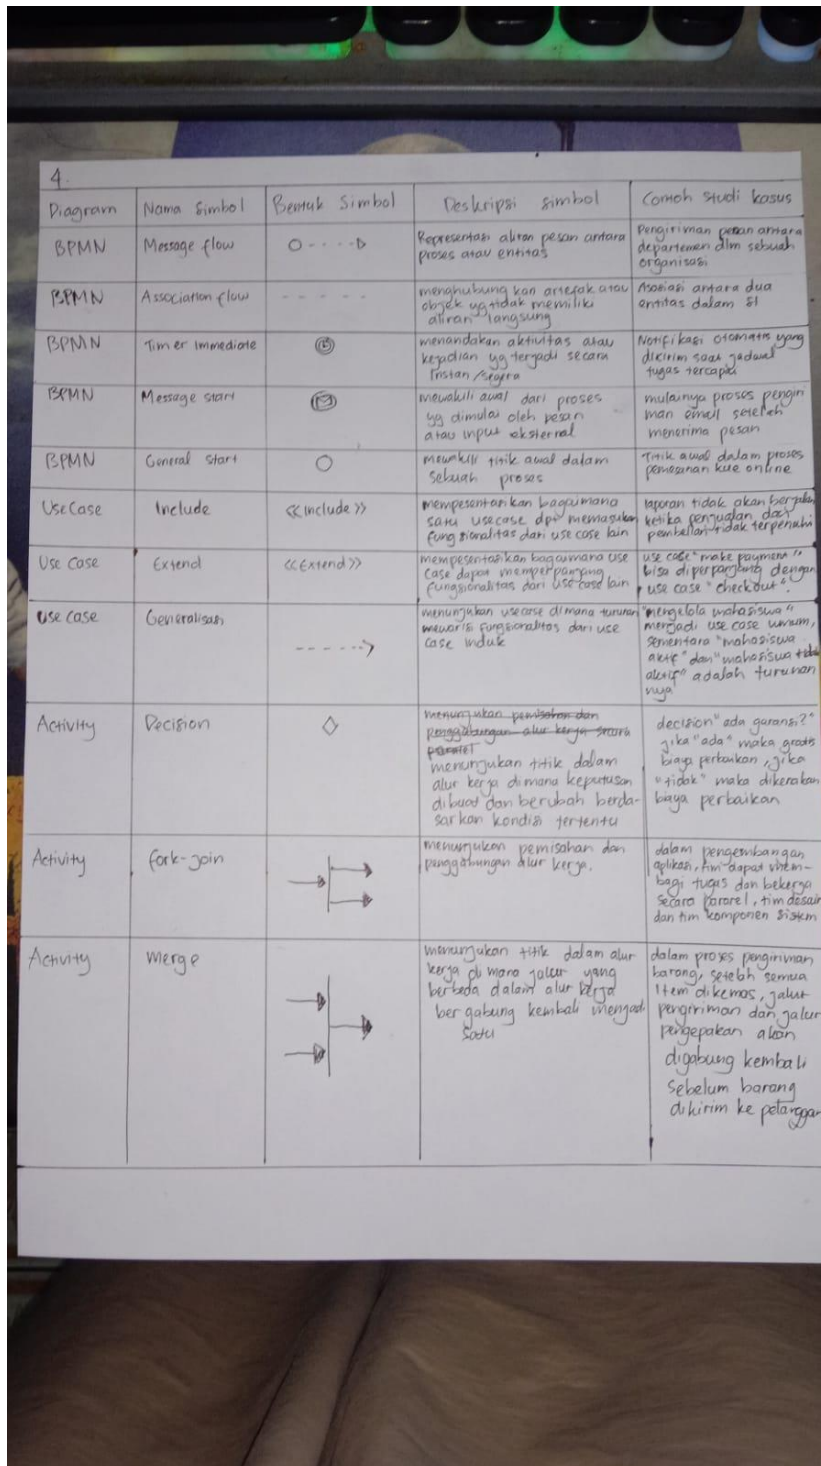 4.
Diagram
Nama Simbol
Bentuk Simbol
Deskripsi simbol
Contoh studi kasus
BPMN
Message flow
Representasi aliran pesan antara
proses atau entitas
Pengiriman pesan antara
departemen dlm sebuah
organisasi
BPMN
Association flow
menghubung kan artefak atau
objek yg tidak memiliki
aliran langsung
Asosiasi antara dua
entitas dalam SI
BPMN
Timer Immediate
menandakan aktivitas atau
kejadian yg terjadi secara
Instan /segera
Notifikasi otomatis yang
dikirim saat jadwal
tugas tercapai
BPMN
Message start
mewakili awal dari proses
yg dimulai oleh pesan
atau input eksternal
mulainya proses pengiri
man email setelah
menerima pesan
BPMN
General Start
mewakili titik awal dalam
sebuah proses
Titik awal dalam proses
pemesanan kue online
Use Case
Include
<<Include>>
mempesentasikan bagaimana
satu usecase dpt memasukan
fungsionalitas dari use case lain
laporan tidak akan berjalan
ketika penjualan dan
pembelian tidak terpenuhi
Use Case
Extend
<<Extend>>
mempesentasikan bagaimana use
case dapat memperpanjang
fungsionalitas dari use case lain
use case "make payment"
bisa diperpanjang dengan
use case "checkout".
Use case
Generalisasi
menunjukan usecase dimana turunan
mewarisi fungsionalitas dari use
case induk
"mengelola mahasiswa"
menjadi use case umum,
sementara "mahasiswa
aktif" dan "mahasiswa tidak
aktif" adalah turunan
nya
Activity
Decision
menunjukan pemisahan dan
penggabungan alur kerja secara
paralel
menunjukan titik dalam
alur kerja dimana keputusan
dibuat dan berubah berda-
sarkan kondisi tertentu
decision "ada garansi?"
jika "ada" maka gratis
biaya perbaikan, jika
"tidak" maka dikenakan
biaya perbaikan
Activity
fork-join
menunjukan pemisahan dan
penggabungan alur kerja.
dalam pengembangan
aplikasi, tim dapat mem-
bagi tugas dan bekerja
secara pararel, tim desain
dan tim komponen sistem
Activity
Merge
menunjukan titik dalam alur
kerja di mana jalur yang
berbeda dalam alur kerja
bergabung kembali menjadi
satu
dalam proses pengiriman
barang, setelah semua
Item dikemas, jalur
pengiriman dan jalur
pengepakan akan
digabung kembali
sebelum barang
dikirim ke pelanggan